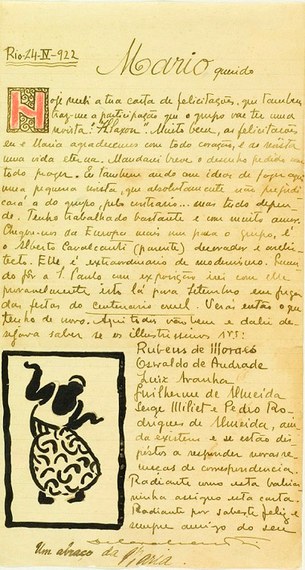 Rio-24-IV-922
Mario querido
Hoje recebi a tua carta de felicitações, que tambem
traz-me a participação que o grupo vae ter uma
revista: "Klaxon". Muito bem, as felicitações
eu e Maria agradecemos com todo coração, e da revista
uma vida eterna. Mandarei breve o desenho pedido com
todo prazer. Eu tambem ando com ideas de fazer aqui
uma pequena revista, que absolutamente não prejudi-
cará o do grupo, pelo contrario... mas tudo depen-
de. Tenho trabalhado bastante e com muito amor.
Chegou-nos da Europa mais um para o grupo, é
o Alberto Cavalcanti (parente) decorador e archi-
tecto. Elle é extraordinario de modernismo. Quan-
do fôr a S. Paulo com exposição irei com elle
provavelmente isto lá para Setembro em
das festas do centenario Verás então o que
tenho de novo. Aqui vão bem e dahi de-
sejava saber se os illustrissimos
Rubens de Moraes
Oswaldo de Andrade
Luiz Aranha
Guilherme de Almeida
Serge Milliet e Pedro Ro-
drigues de Almeida, ain-
da existem e se estão dis-
postos a responder novas re-
meças de correspondencia.
Radiante como esta bahia-
ninha assigno esta carta.
Radiante por saberte feliz e
sempre amigo do seu
Um abraço da Maria.